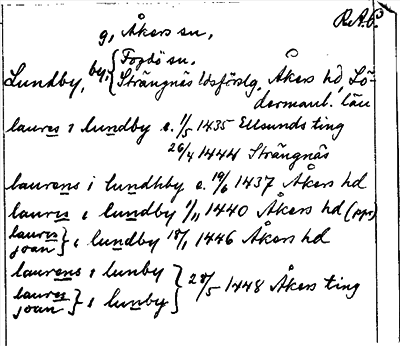 R.A.O.
g, Åkers sn,
Fogdö sn.
Lundby, by, Strängnäs lösförslg, Åkers hd, Sö-
dermanl. län
laures i lundby s. 1/5 1435 Ellsunds ting
26/4 1444 Strängnäs
laurens i lundhby s. 19/6 1437 Åkers hd
laures i lundby 1/11 1440 Åkers hd (ppr)
laures
joan } i lundby 18/1 1446 Åkers hd
laurens i lunby
28/5 1448 Åkers ting
laures
joan } i lunby